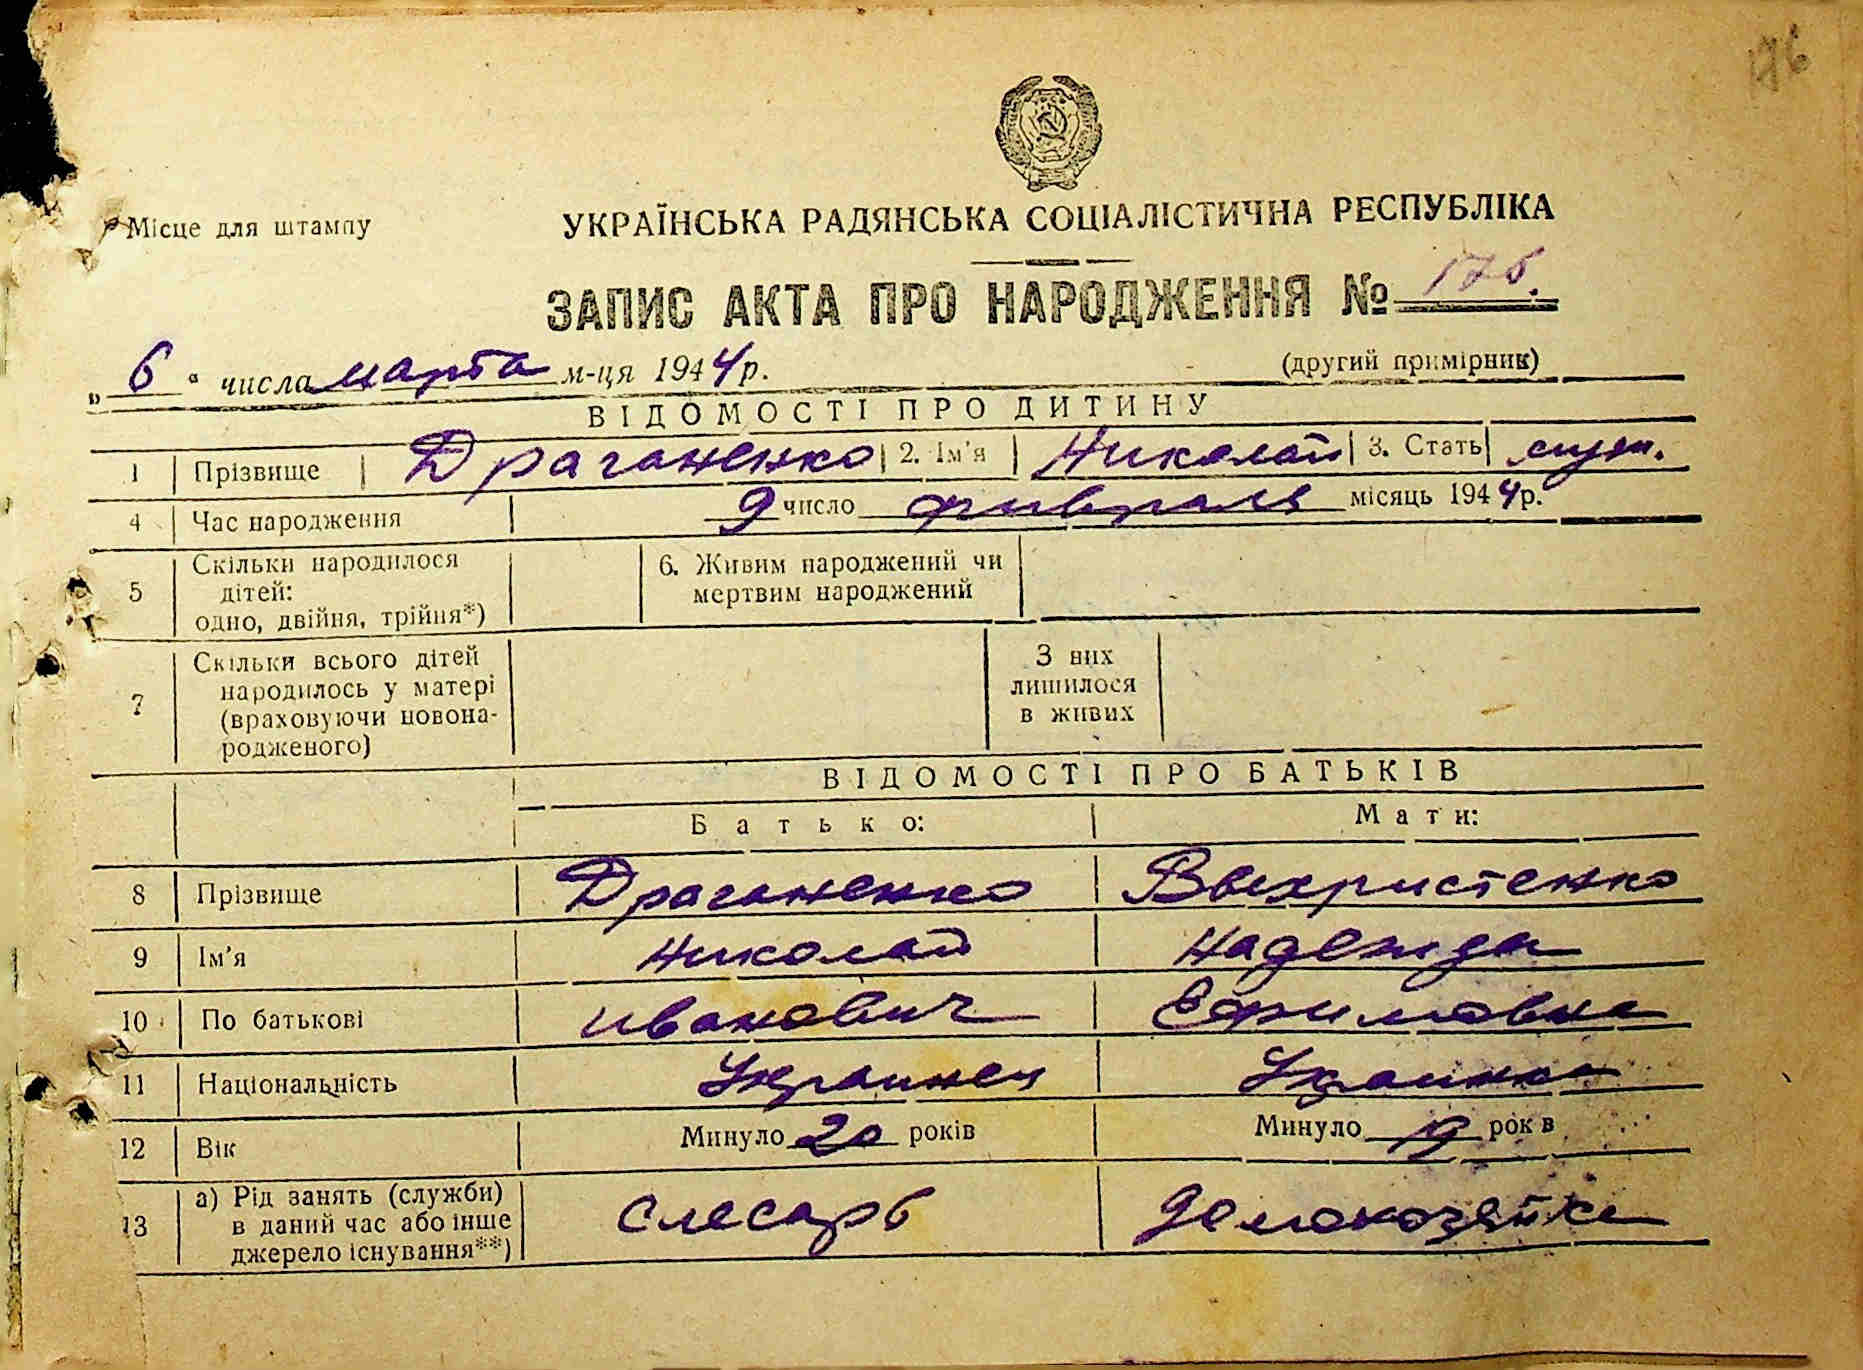 176
Місце для штампу
УКРАЇНСЬКА РАДЯНСЬКА СОЦІАЛІСТИЧНА РЕСПУБЛІКА
ЗАПИС АКТА ПРО НАРОДЖЕННЯ № 176.
„ 6 “ числа марта м-ця 1944 р. (другий примірник)
ВІДОМОСТІ ПРО ДИТИНУ
1 Прізвище Драганенко 2. Ім'я Николай 3. Стать муж.
4 Час народження 9 число февраля місяць 1944 р.
5 Скільки народилося дітей: одно, двійня, трійня*) 6. Живим народжений чи мертвим народжений
7 Скільки всього дітей народилось у матері (враховуючи новона-родженого) З них лишилося в живих
ВІДОМОСТІ ПРО БАТЬКІВ
Батько: Мати:
8 Прізвище Драганенко Выхристенко
9 Ім'я Николай Надежда
10 По батькові Иванович Ефимовна
11 Національність Украинец Украинка
12 Вік Минуло 20 років Минуло 19 рок в
13 а) Рід занять (служби) в даний час або інше джерело існування**) Слесарь домохозяйка